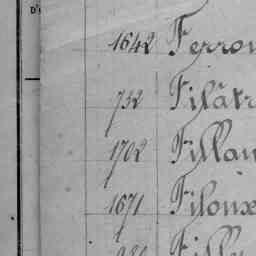 D'
1642 Ferrou
732 Filâtr
1702 Fillau
1671 Filoux
980 Filly